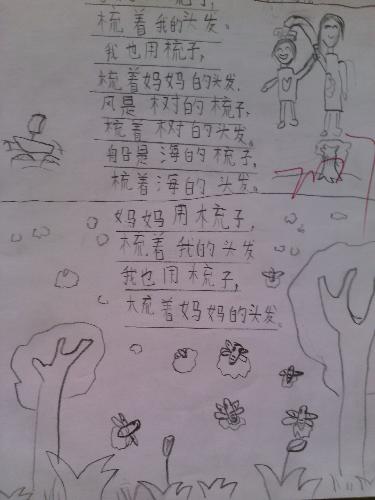 梳着我的头发。
我也用梳子,
梳着妈妈的头发.
风是树的梳子,
梳着树的头发。
船是海的梳子,
梳着海的头发。
妈妈用梳子,
梳着我的头发
我也用梳子,
梳着妈妈的头发。